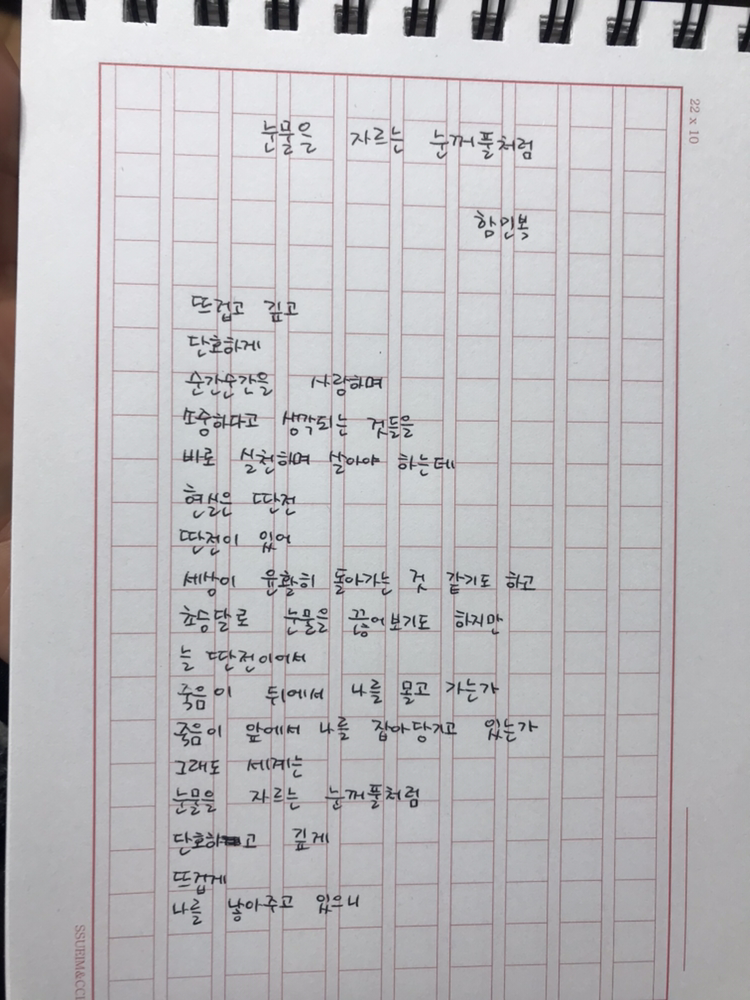 22 x 10
눈물을 자르는 눈꺼풀처럼
함민복
뜨겁고 깊고
단호하게
순간순간을 사랑하며
소중하다고 생각되는 것들을
바로 실천하며 살아야 하는데
현실은 딴전
딴전이 있어
세상이 윤활히 돌아가는 것 같기도 하고
초승달로 눈물을 끊어보기도 하지만
늘 딴전이어서
죽음이 뒤에서 나를 몰고 가는가
죽음이 앞에서 나를 잡아당기고 있는가
그래도 세계는
눈물을 자르는 눈꺼풀처럼
단호하고 깊게
뜨겁게
나를 낳아주고 있으니